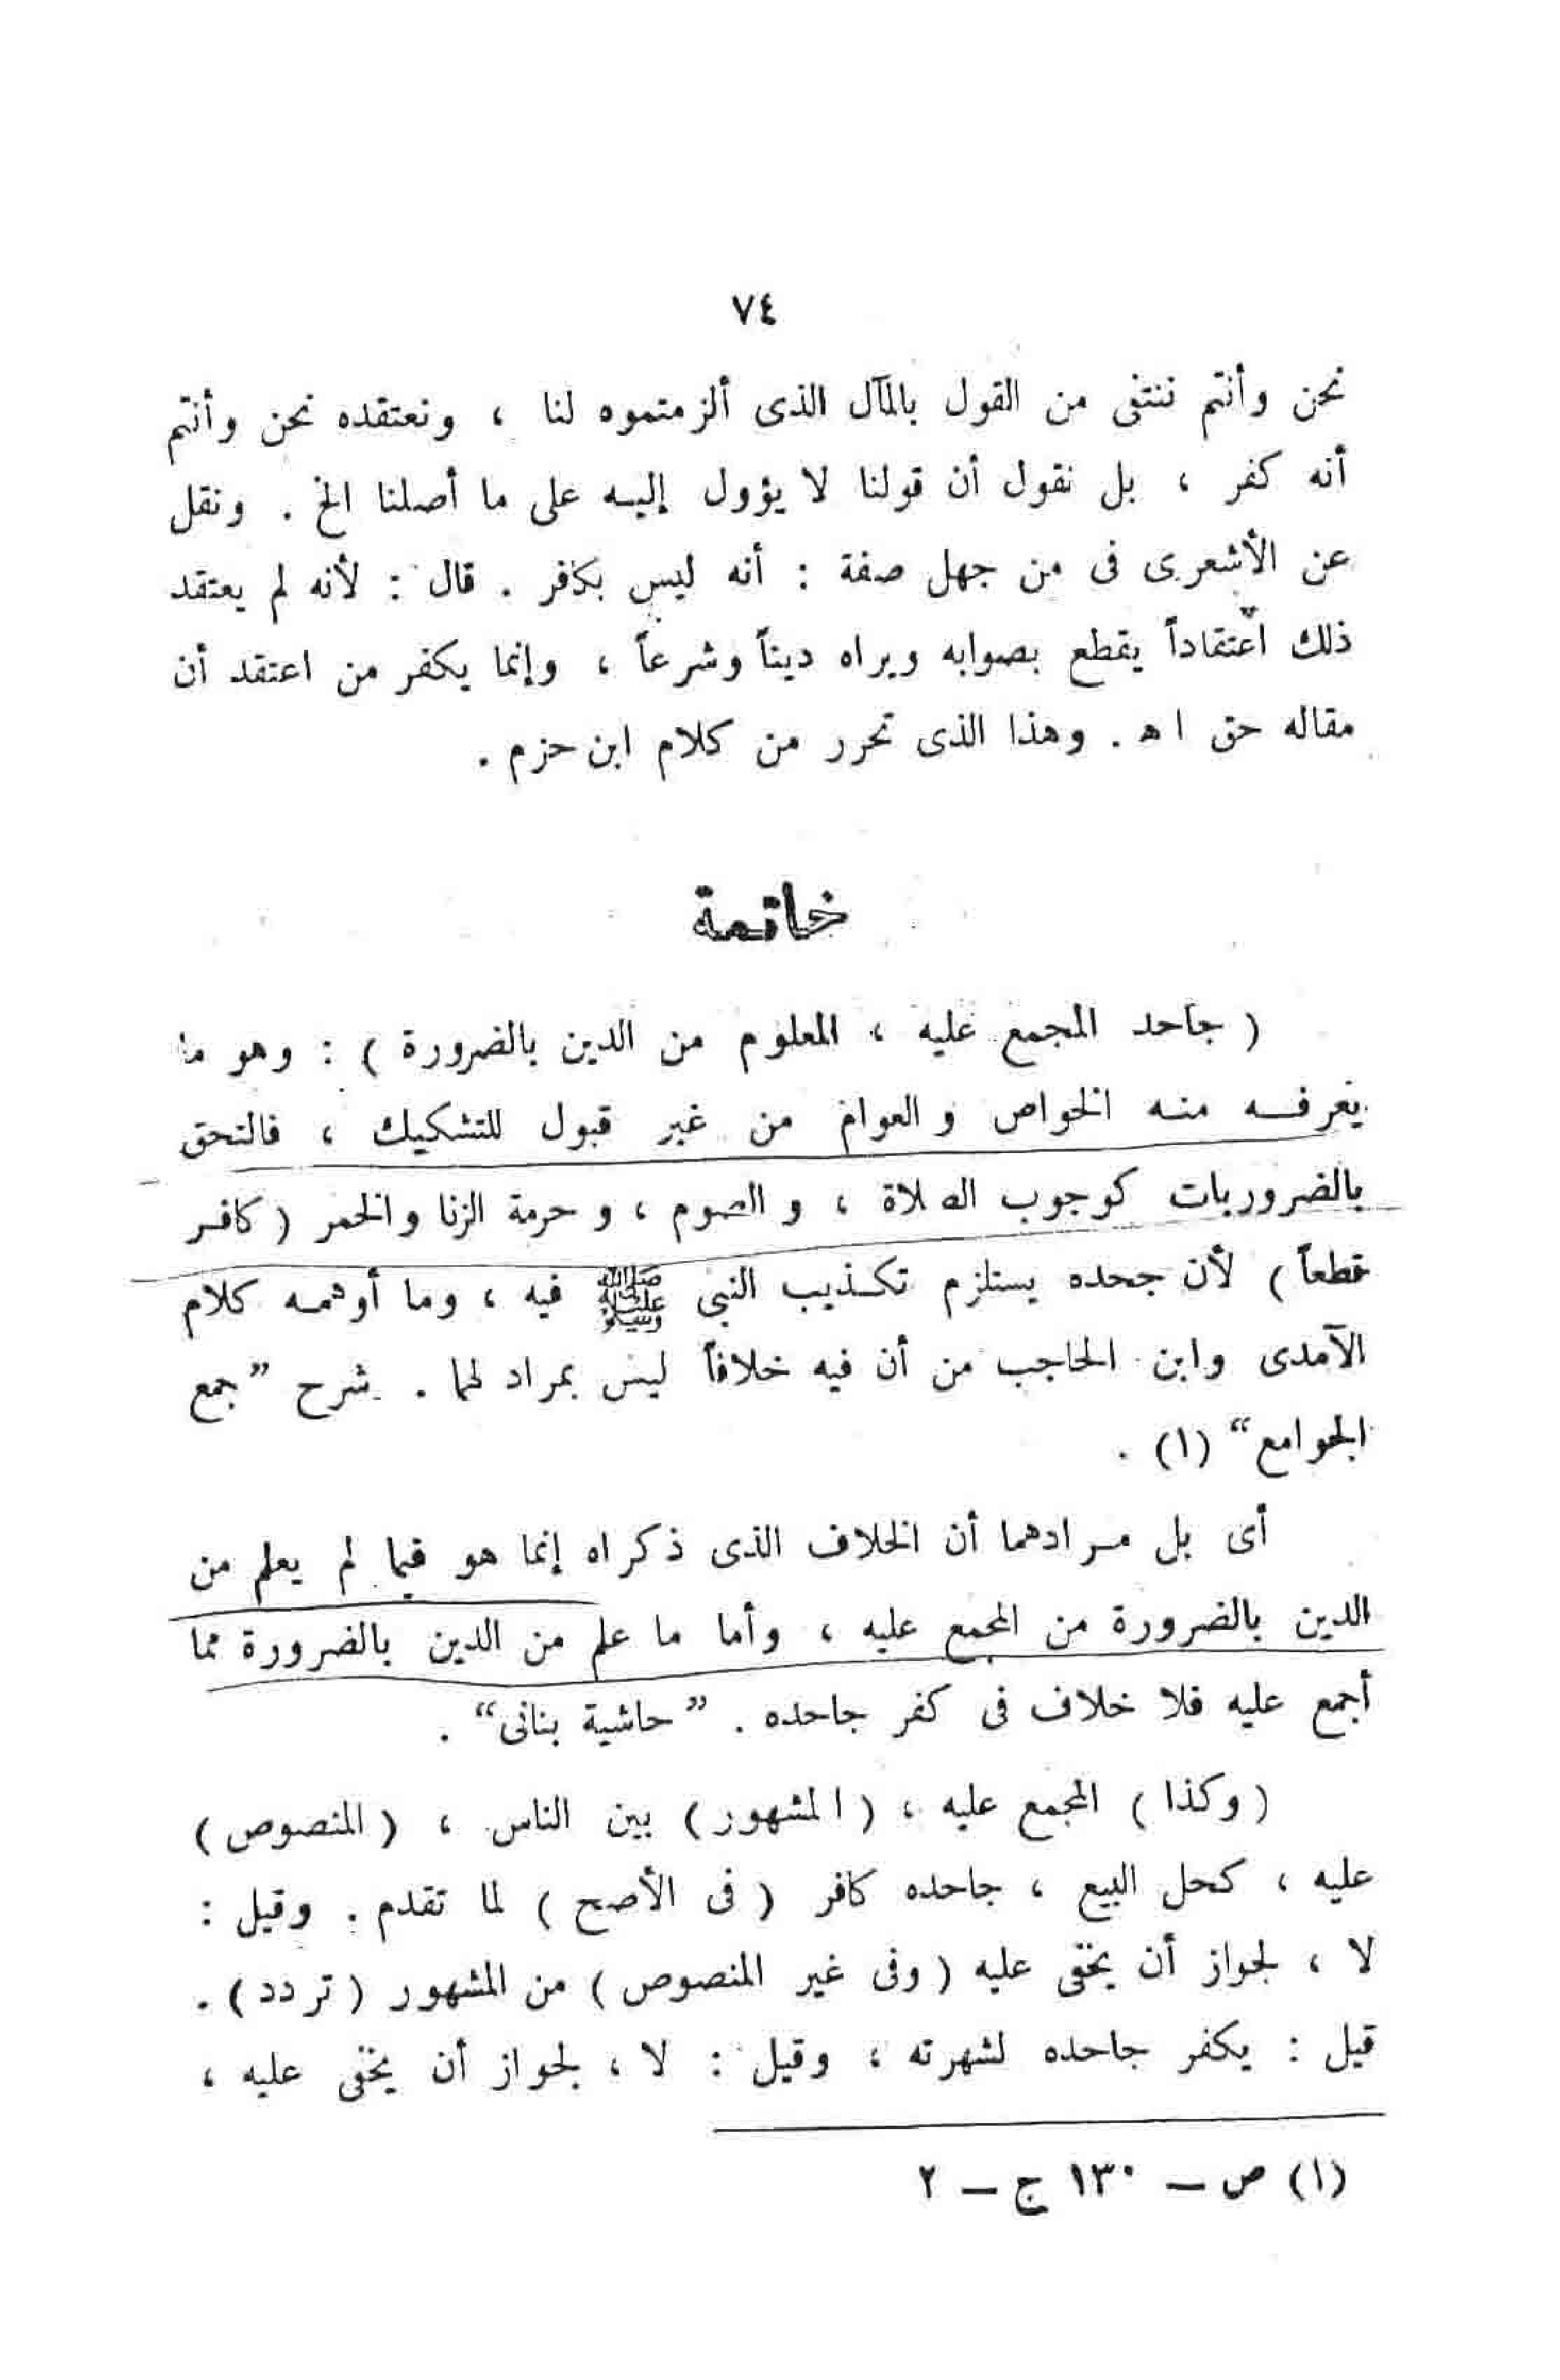 ٧٤
نحن وأنتم ننتفى من القول بالمآل الذى ألزمتموه لنا ، ونعتقده نحن وأنتم
أنه كفر ، بل نقول أن قولنا لا يؤول إليه على ما أصلنا الخ . ونقل
عن الأشعرى فى من جهل صفة : أنه ليس بكافر . قال : لأنه لم يعتقد
ذلك اعتقاداً يقطع بصوابه ويراه ديناً وشرعاً ، وإنما يكفر من اعتقد أن
مقاله حق ا ه . وهذا الذى تحرر من كلام ابن حزم .
خاتمة
( جاحد المجمع عليه ، المعلوم من الدين بالضرورة ) : وهو ما
يعرفه منه الخواص والعوام من غير قبول للتشكيك ، فالتحق
بالضروريات كوجوب الصلاة ، والصوم ، وحرمة الزنا والخمر ( كافر
قطعاً ) لأن جحده يستلزم تكذيب النبى ﷺ فيه ، وما أوهمه كلام
الآمدى وابن الحاجب من أن فيه خلافاً ليس بمراد لهما . شرح ”جمع
الجوامع“ (١) .
أى بل مرادهما أن الخلاف الذى ذكراه إنما هو فيما لم يعلم من
الدين بالضرورة من المجمع عليه ، وأما ما علم من الدين بالضرورة مما
أجمع عليه فلا خلاف فى كفر جاحده . ”حاشية بنانى“ .
( وكذا ) المجمع عليه ، ( المشهور ) بين الناس ، ( المنصوص )
عليه ، كحل البيع ، جاحده كافر ( فى الأصح ) لما تقدم . وقيل :
لا ، لجواز أن يخفى عليه ( وفى غير المنصوص ) من المشهور ( تردد ) .
قيل : يكفر جاحده لشهرته ، وقيل : لا ، لجواز أن يخفى عليه ،
(١) ص – ١٣٠ ج – ٢